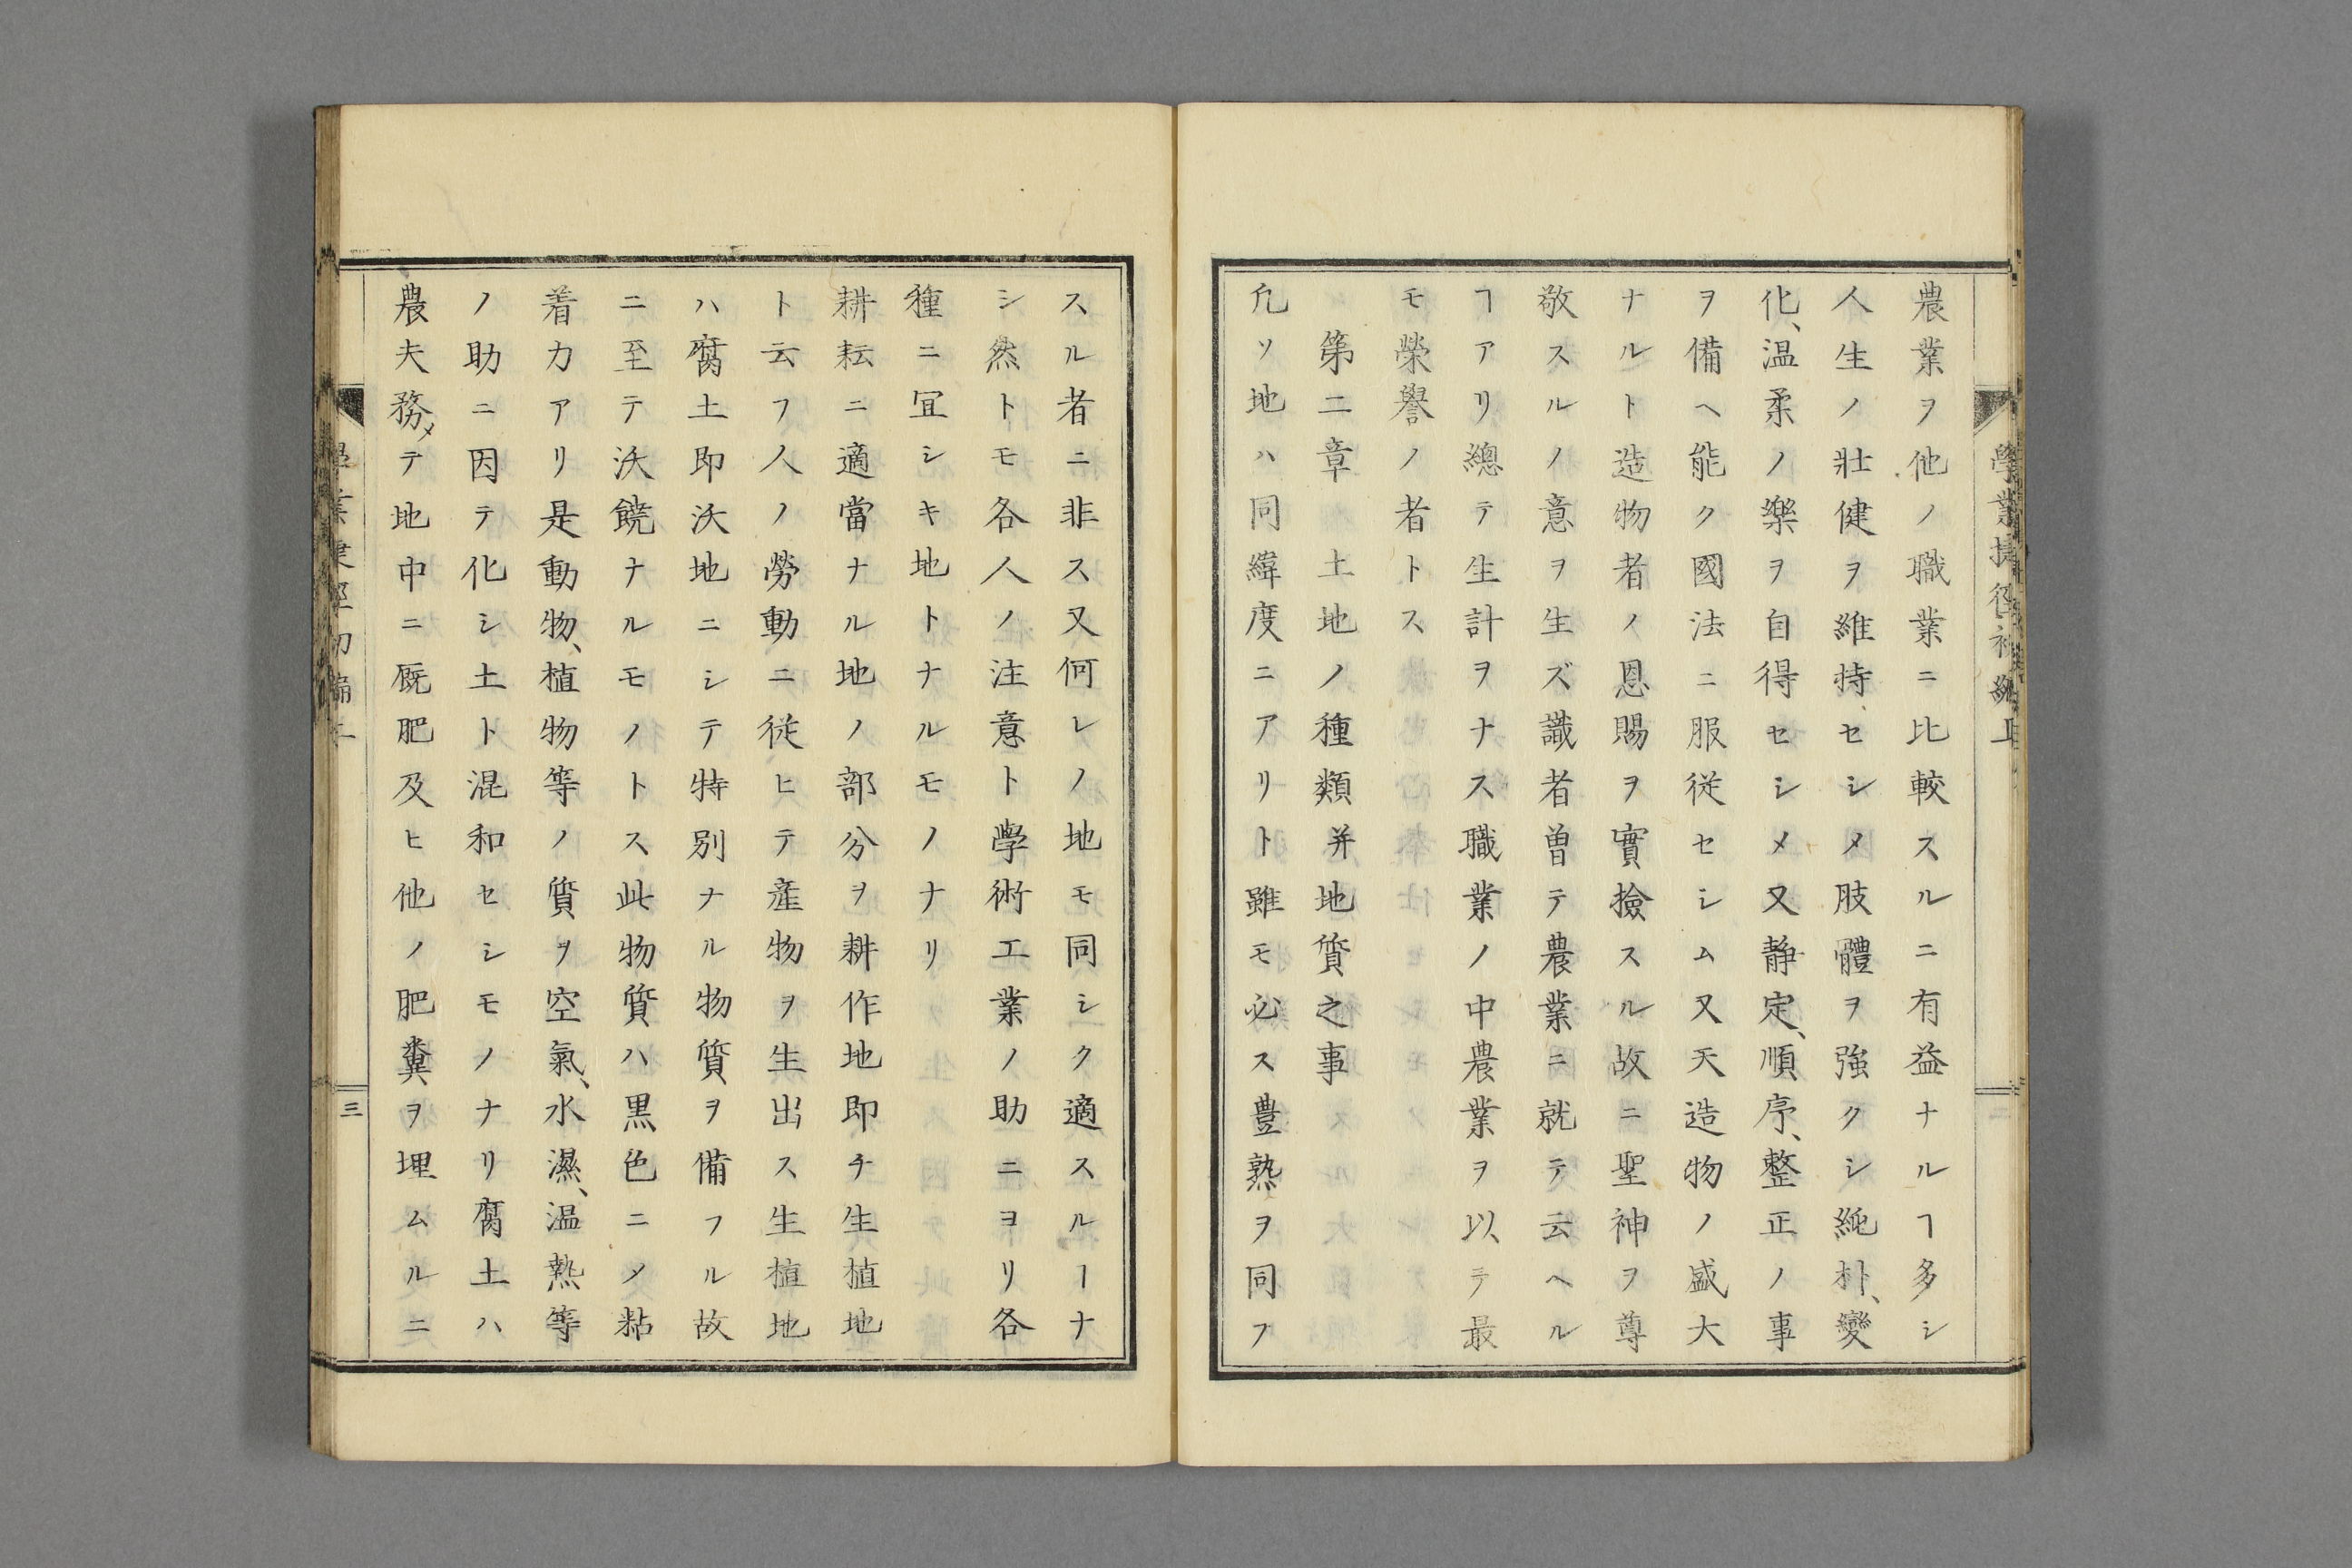 農業ヲ他ノ職業ニ比較スルニ有益ナルヿ多シ
人生ノ壯健ヲ維持セシメ肢體ヲ強クシ純朴、變
化、温柔ノ樂ヲ自得セシメ又静定、順序、整正ノ事
ヲ備ヘ能ク國法ニ服従セシム又天造物ノ盛大
ナルト造物者ノ恩賜ヲ實撿スル故ニ聖神ヲ尊
敬スルノ意ヲ生ズ識者曽テ農業ニ就テ云ヘル
ヿアリ總テ生計ヲナス職業ノ中農業ヲ以テ最
モ榮譽ノ者トス
第二章 土地ノ種類并地質之事
凢ソ地ハ同緯度ニアリト雖モ必ス豊熟ヲ同フ
スル者ニ非ス又何レノ地モ同シク適スルーナ
シ然トモ各人ノ注意ト學術工業ノ助ニヨリ各
種ニ冝シキ地トナルモノナリ
耕耘ニ適當ナル地ノ部分ヲ耕作地即チ生植地
ト云フ人ノ勞動ニ従ヒテ産物ヲ生出ス生植地
ハ腐土即沃地ニシテ特別ナル物質ヲ備フル故
ニ至テ沃饒ナルモノトス此物質ハ黒色ニメ粘
着カアリ是動物、植物等ノ質ヲ空氣、水濕、温熱等
ノ助ニ因テ化シ土ト混和セシモノナリ腐土ハ
農夫務メテ地中ニ厩肥及ヒ他ノ肥糞ヲ埋ムルニ
三